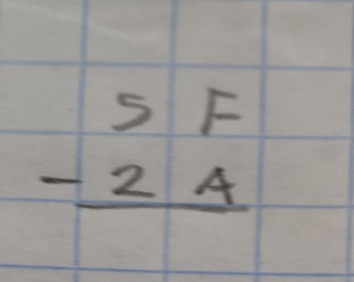 5 F
- 2 A